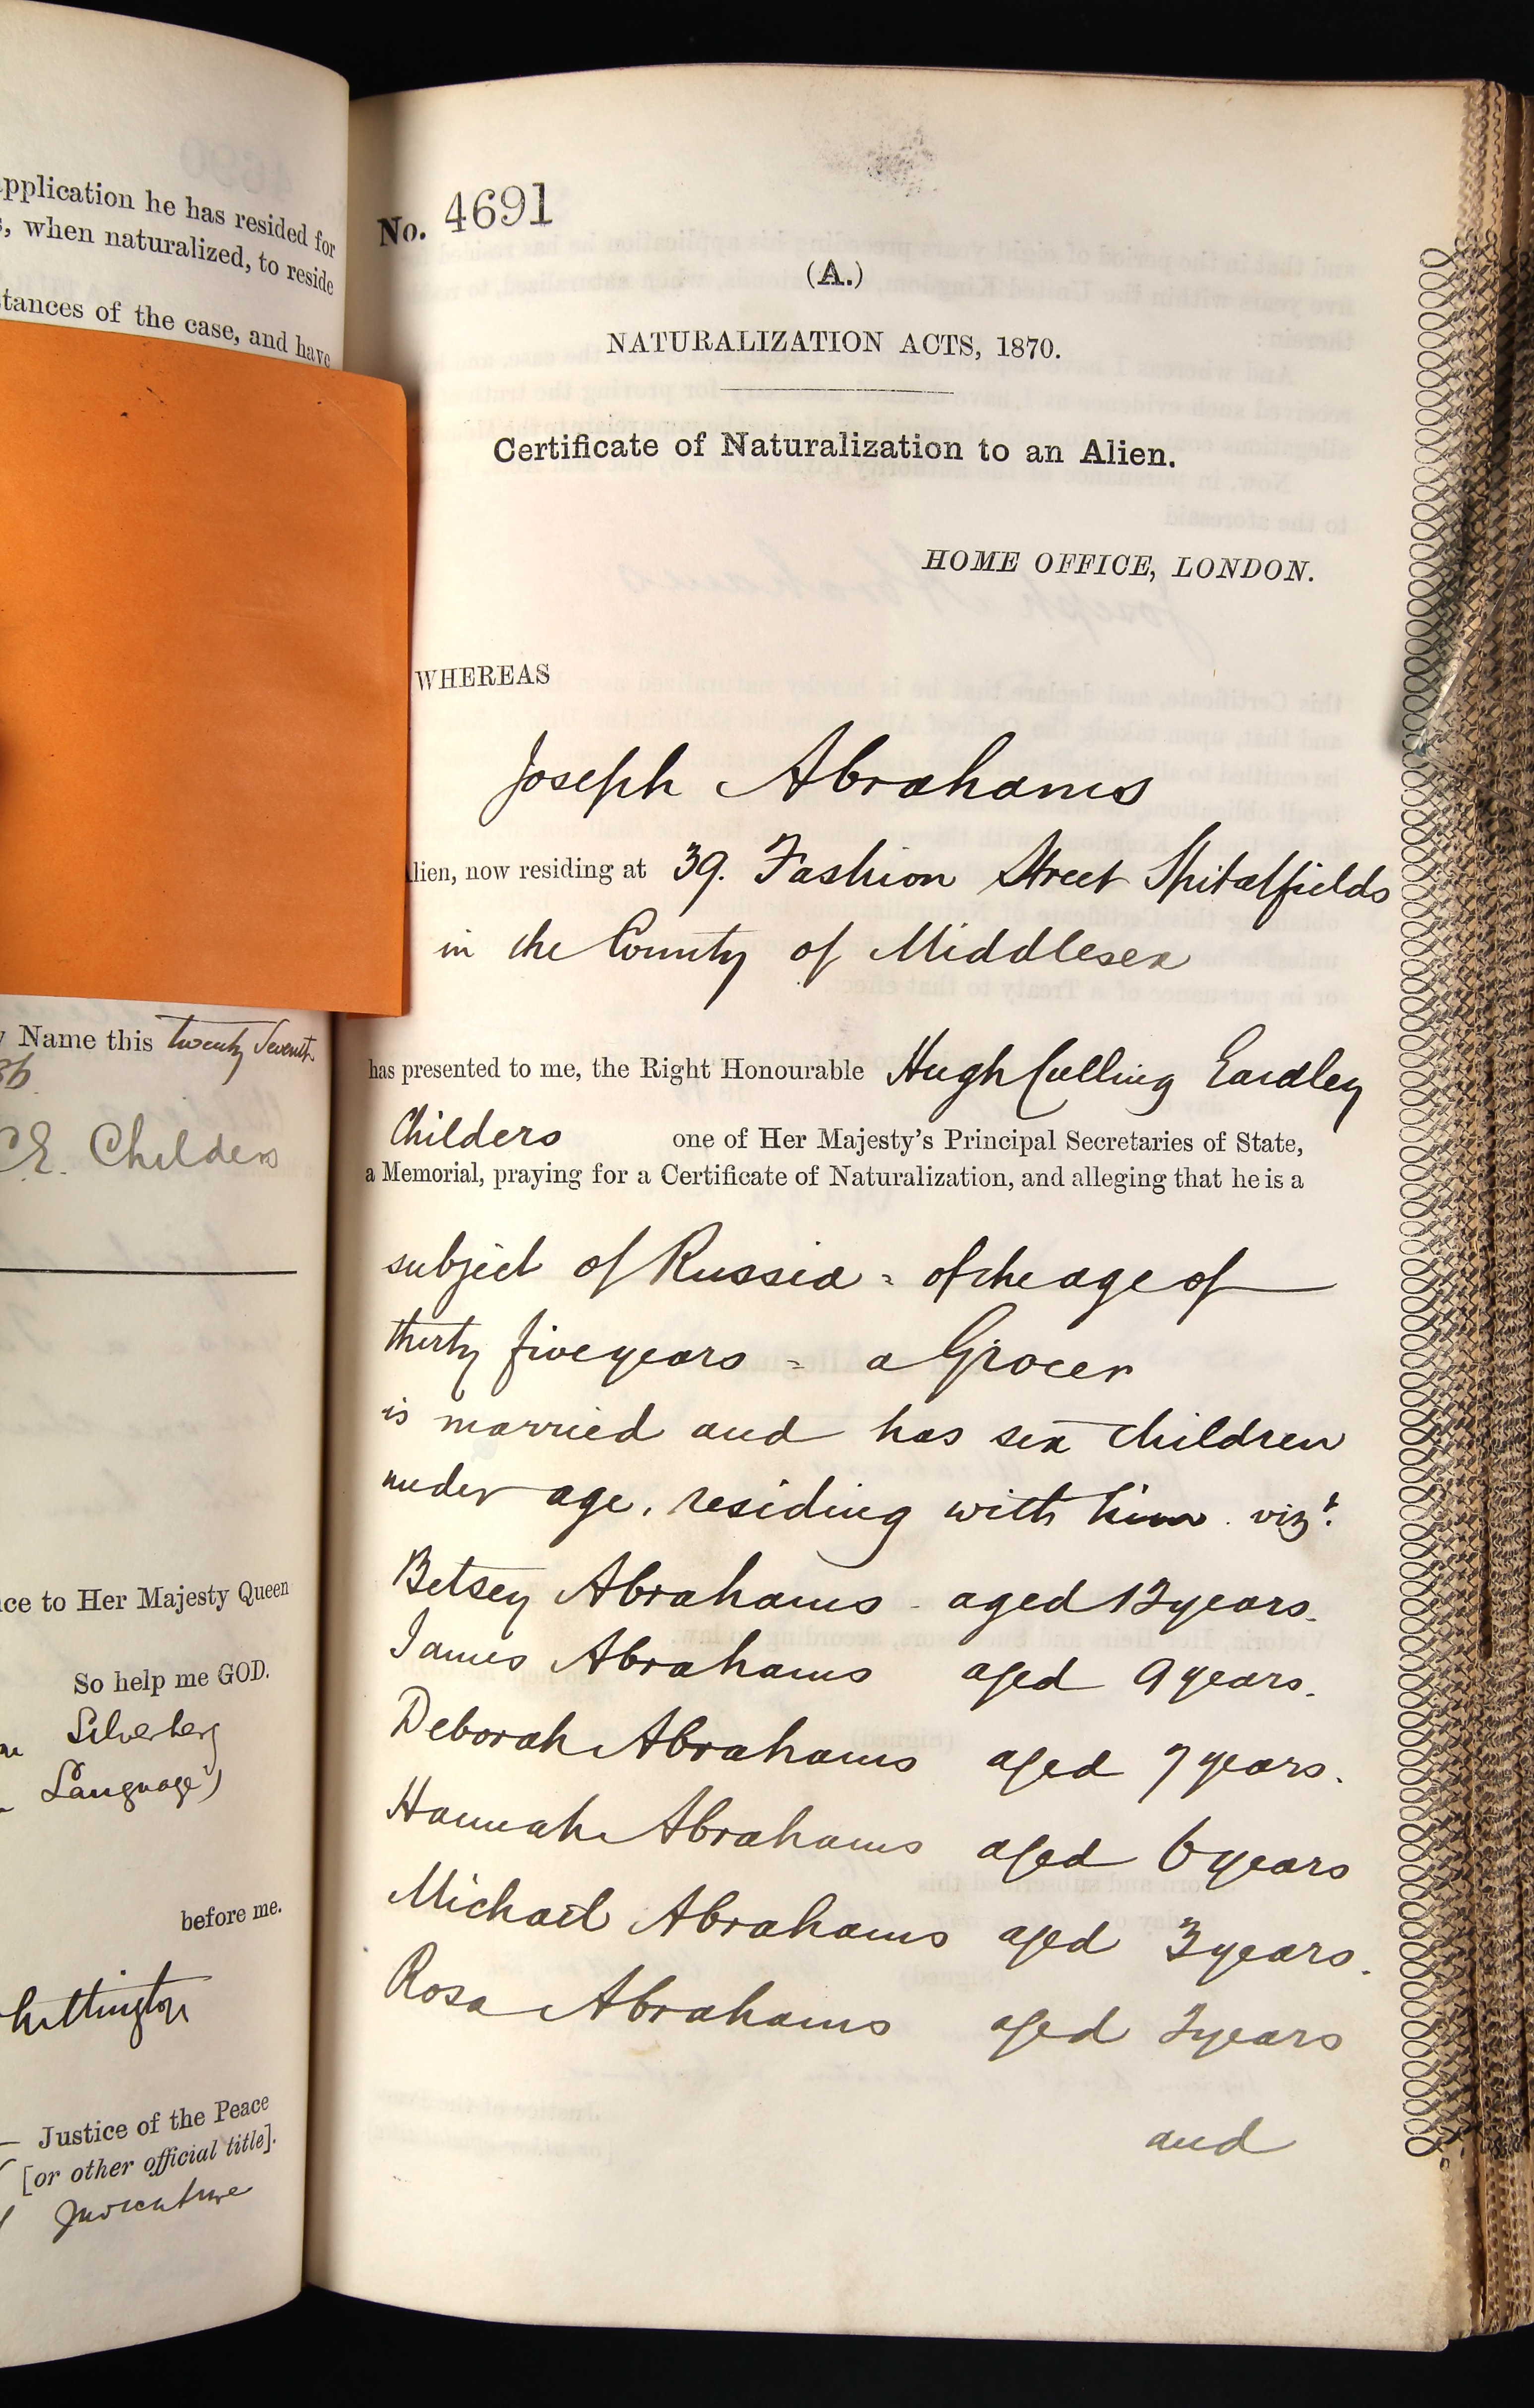 application he has resided for
, when naturalized, to reside
stances of the case, and have
Name this twenty seventh
86
C E. Childers
ce to Her Majesty Queen
So help me GOD.
Silverberg
Language)
before me.
Whittington
Justice of the Peace
[or other official title].
Judicature
No. 4691
(A.)
NATURALIZATION ACTS, 1870.
Certificate of Naturalization to an Alien.
HOME OFFICE, LONDON.
WHEREAS
Joseph Abrahams
Alien, now residing at 39. Fashion Street Spitalfields
in the County of Middlesex
has presented to me, the Right Honourable Hugh Culling Eardley
Childers one of Her Majesty's Principal Secretaries of State,
a Memorial, praying for a Certificate of Naturalization, and alleging that he is a
subject of Russia = of the age of
thirty five years = a Grocer
is married and has six children
under age, residing with him. vizt.
Betsey Abrahams - aged 12 years.
James Abrahams aged 9 years.
Deborah Abrahams aged 7 years.
Hannah Abrahams aged 6 years
Michael Abrahams aged 3 years.
Rosa Abrahams aged 2 years
and